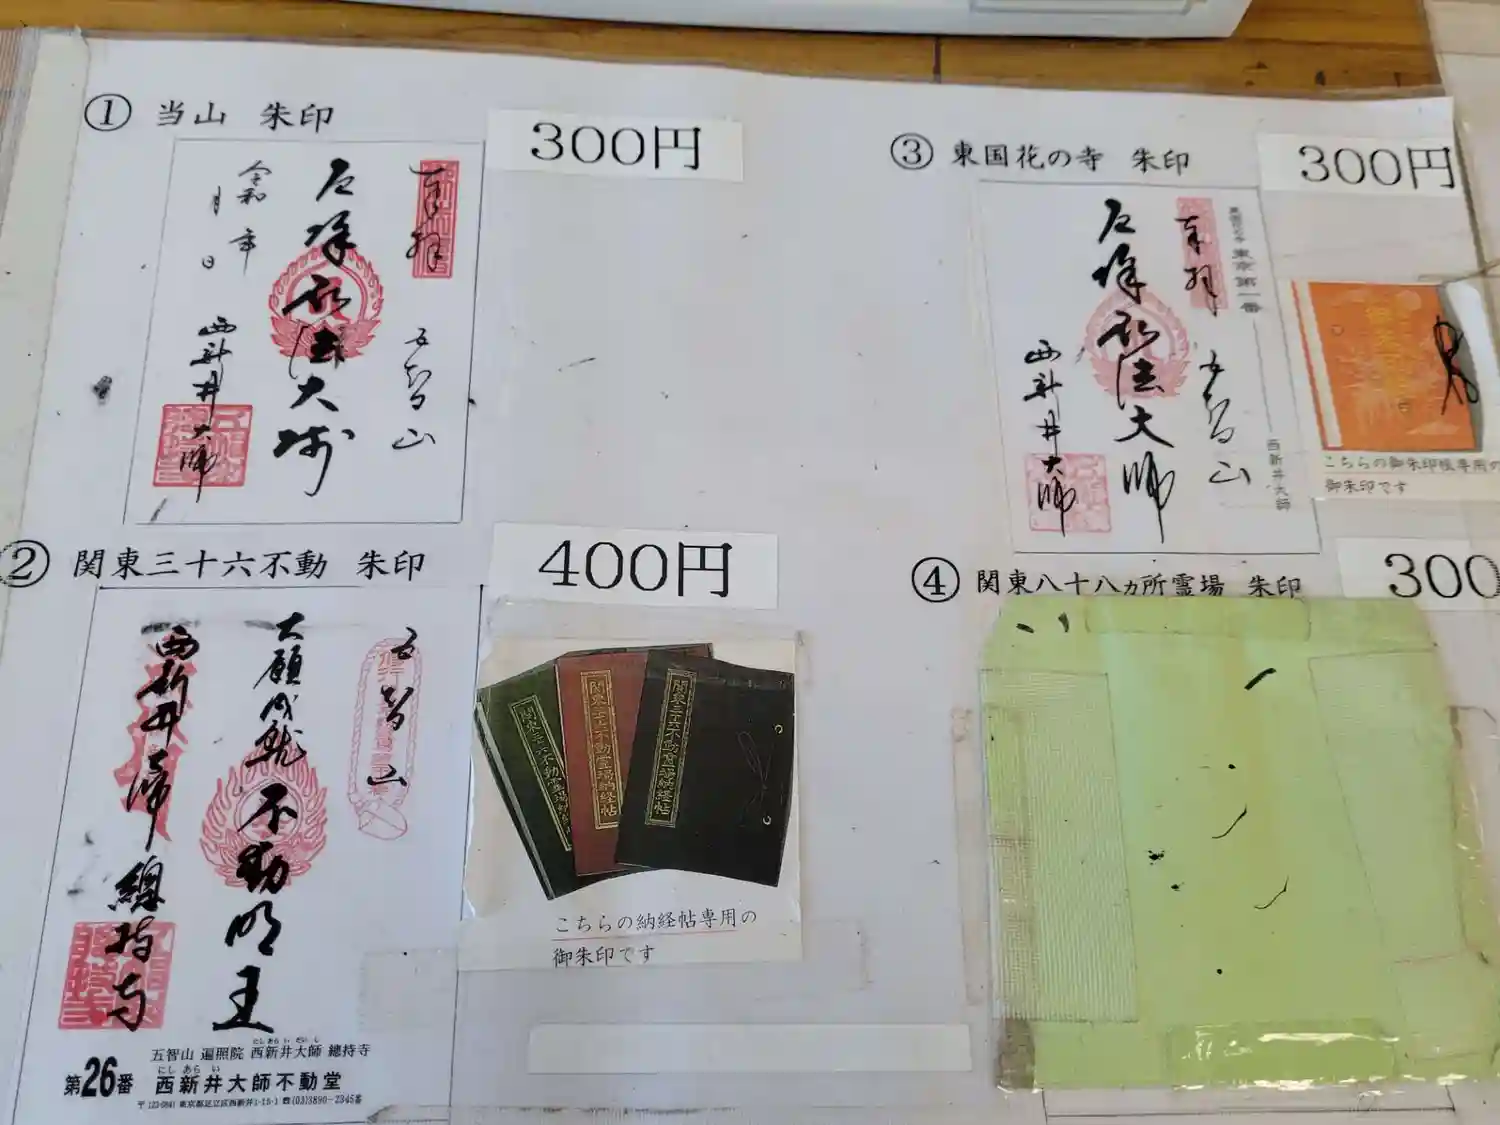 ① 当山 朱印
300円
奉拝
五智山
弘法大師
令和 年
月 日
西新井
大師
② 関東三十六不動 朱印
400円
五智山
大願成就
不動明王
西新井
總持寺
第26番
五智山 遍照院 西新井大師 總持寺
にし あら い だい し
にし あら い
西新井大師不動堂
東京都足立区西新井1-15-1 ☎(03)3890-2345番
関東三十六不動霊場納経帖
関東三十六不動霊場納経帖
関東三十六不動霊場納経帖
こちらの納経帖専用の
御朱印です
③ 東国花の寺 朱印
300円
東国花の寺 東京第一番
西新井大師
奉拝
五智山
弘法大師
西新井
大師
こちらの御朱印帳専用の
御朱印です
④ 関東八十八ヵ所霊場 朱印
300